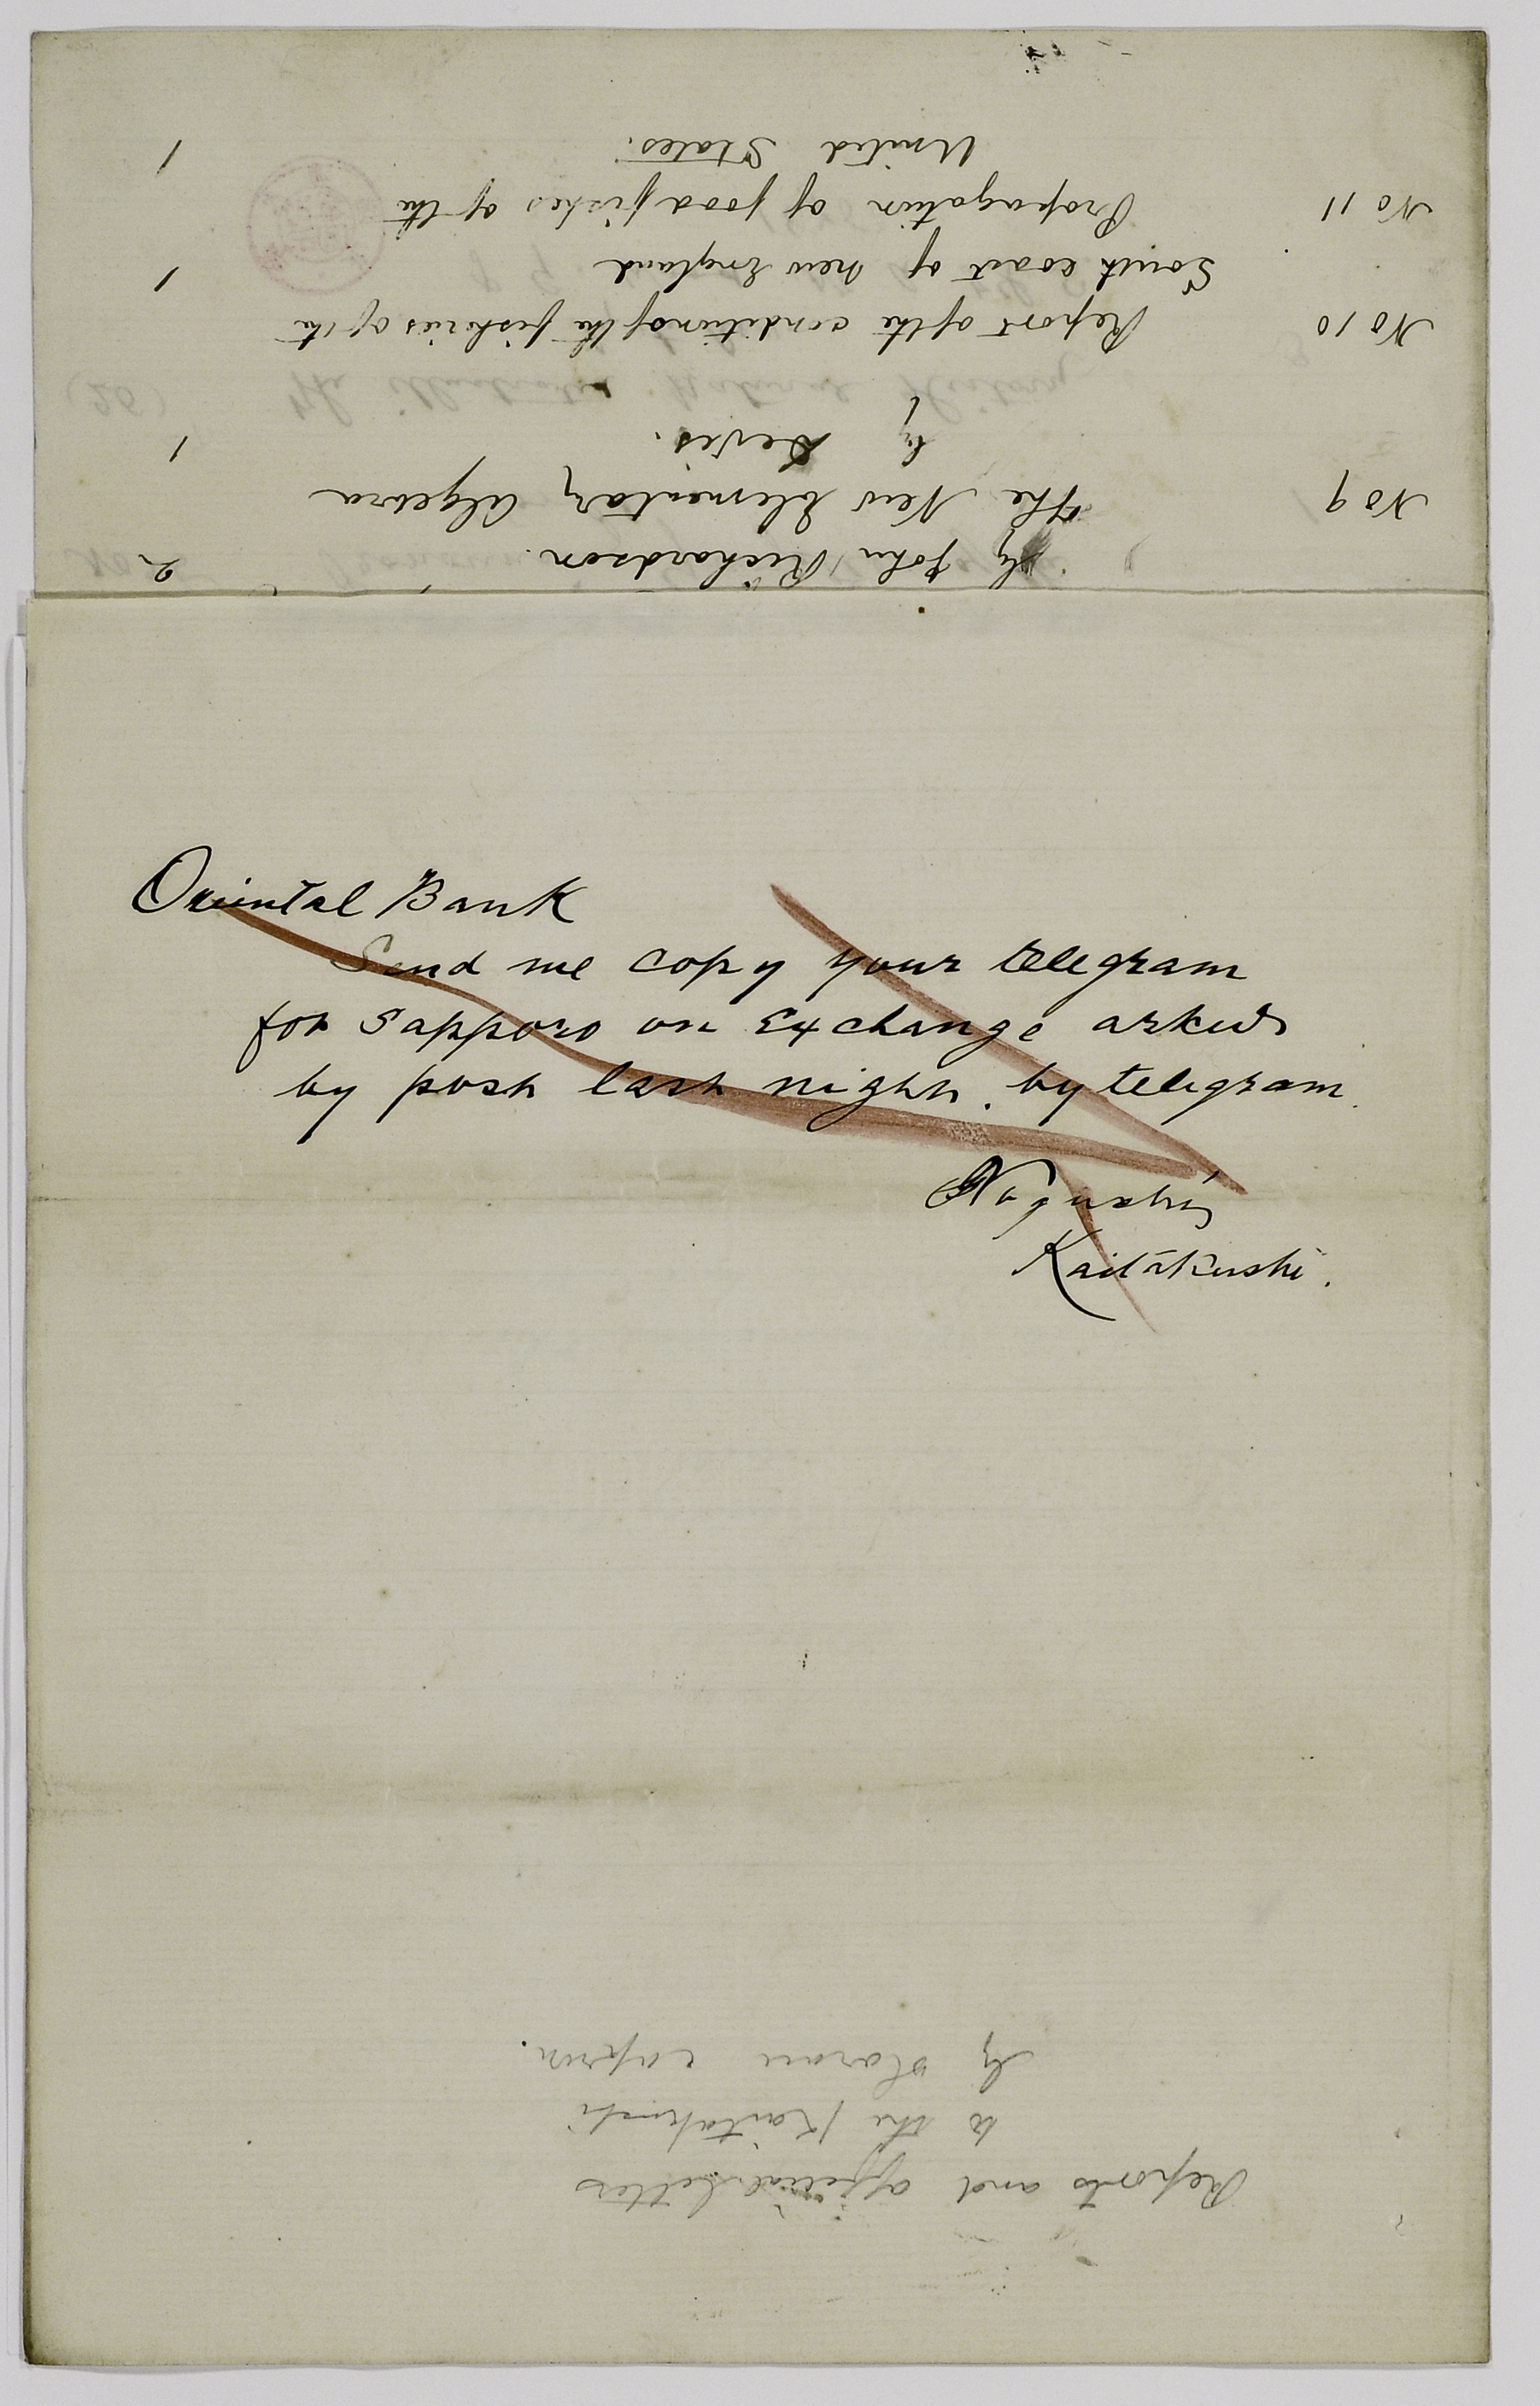 by John Richardson. 2
No 9 The New Elementary Algebra
by Devis. 1
No 10 Report of the condition of the fisheries of the
South coast of new England 1
No 11 Propagation of food fishes of the
United States. 1
Oriental Bank
Send me copy your telegram
for Sapporo on Exchange asked
by posh last night. by telegram.
Noguchi
Kaitakushi.
Reports and official Letters
to the Kaitakushi
by Horace capron.